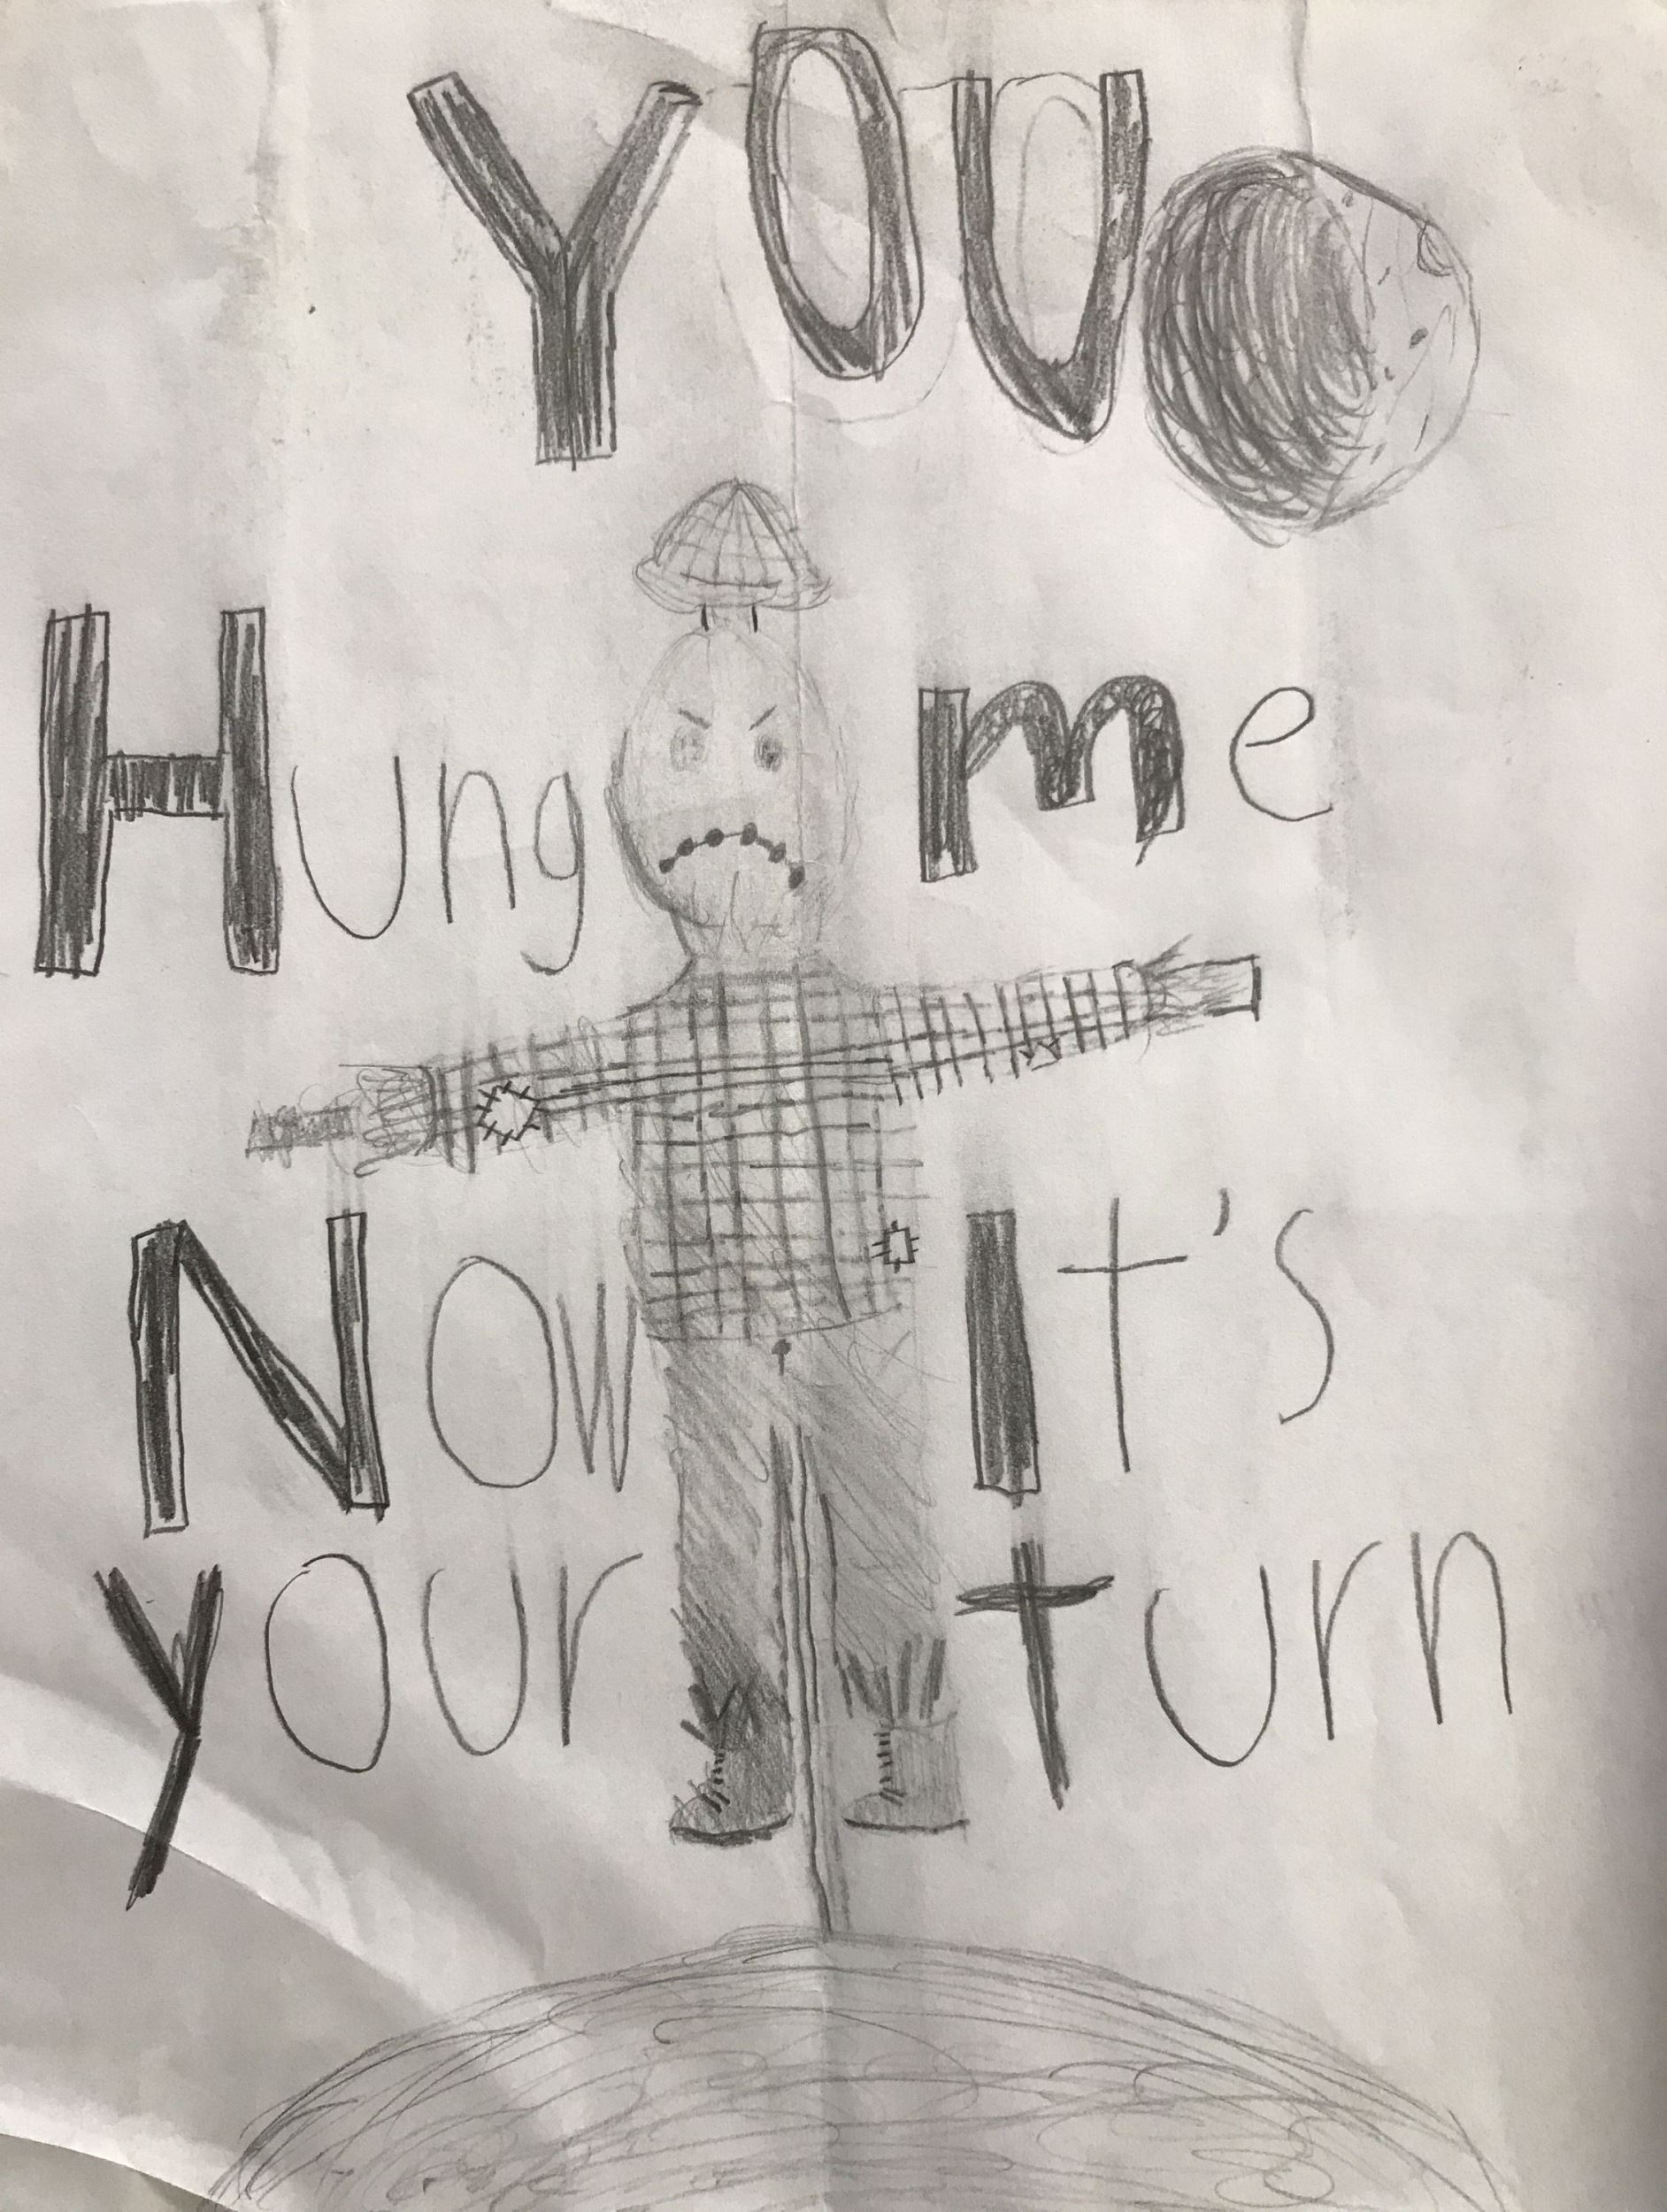 YOU
Hung me
Now It's
your turn